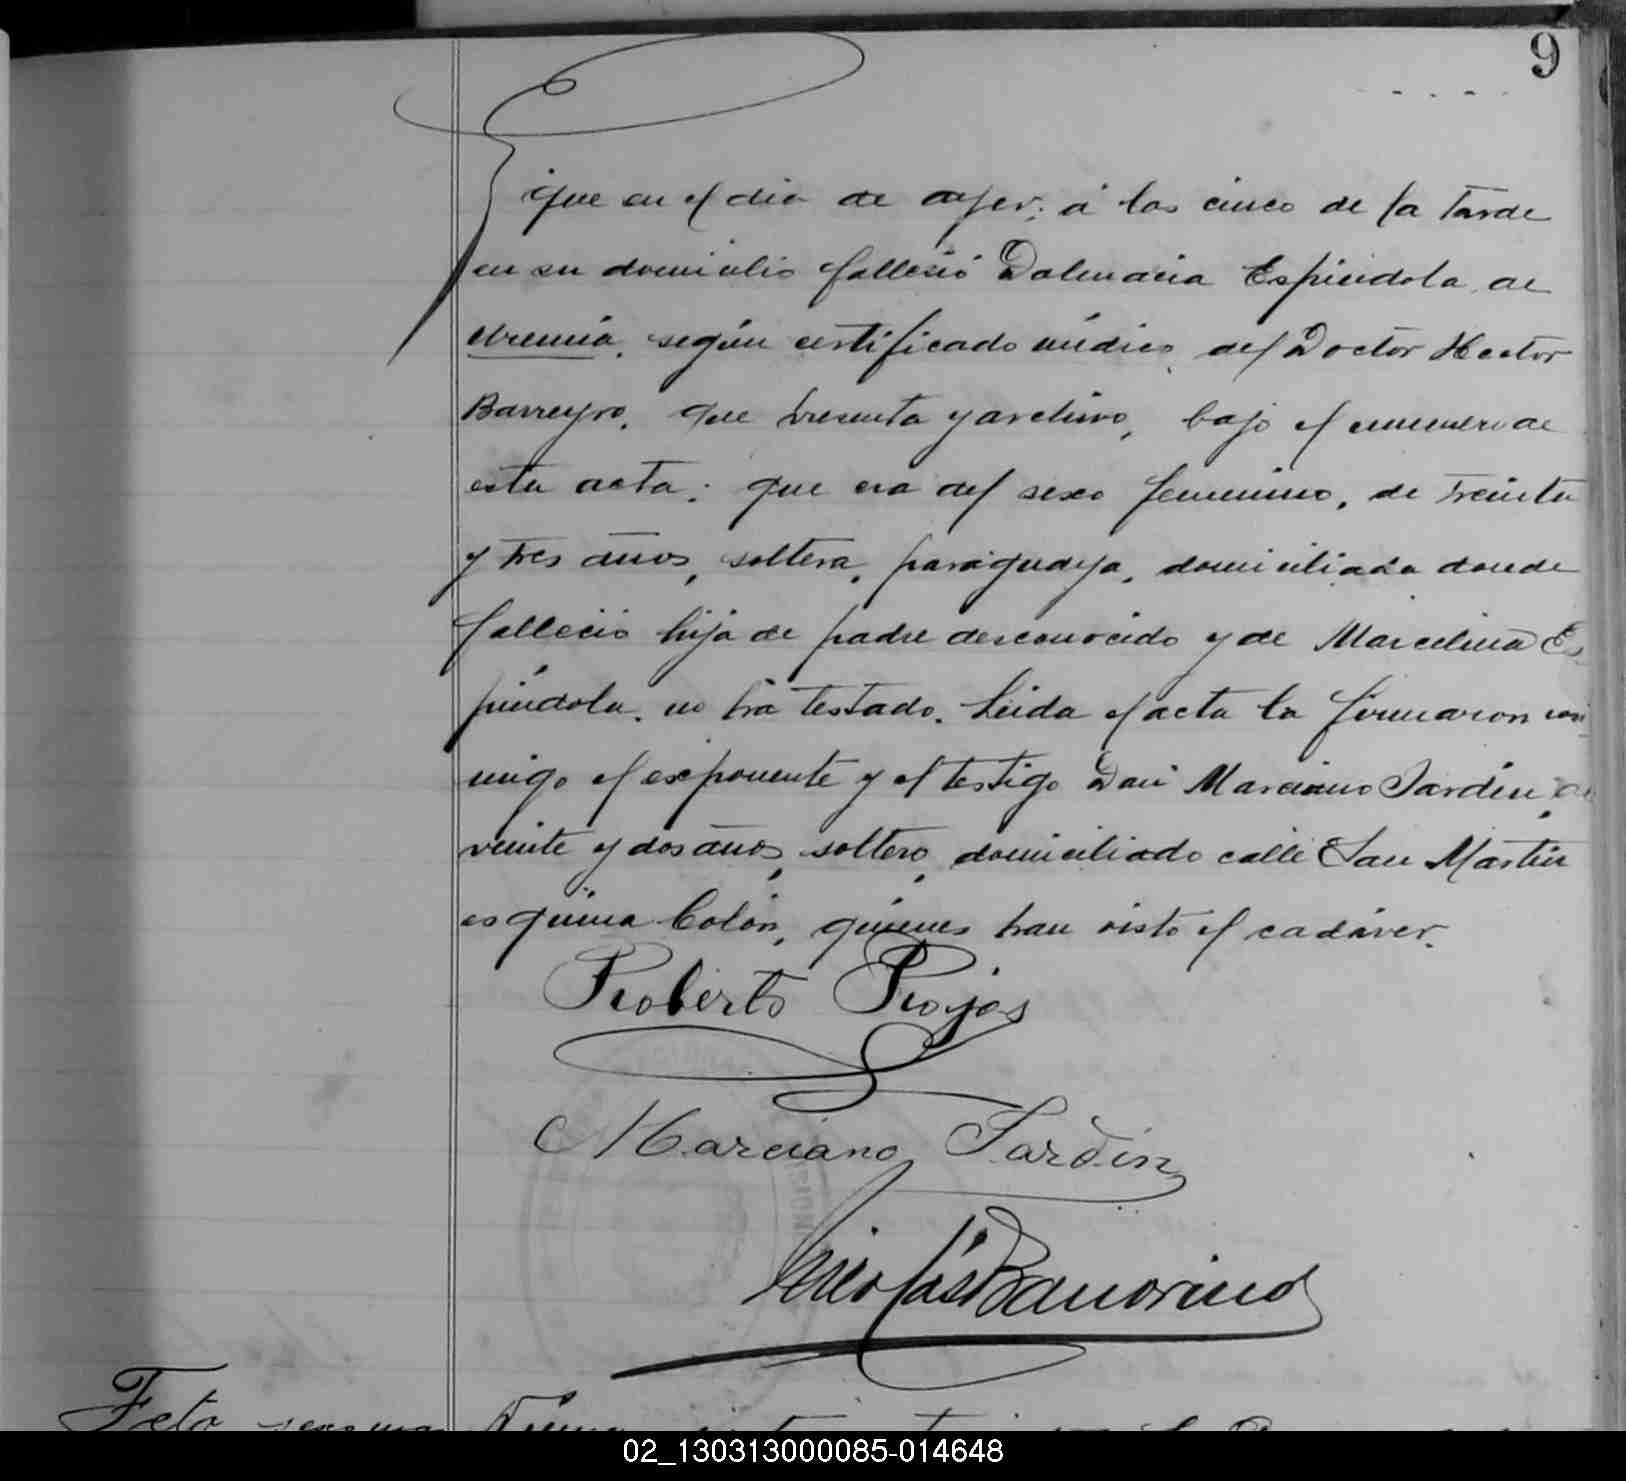 9
que en el dia de ayer; á las cinco de la tarde
en su domicilio fallesió Dalmacia Espindola, de
uremia, según certificado médico, del Doctor Hector
Barreyro, que presenta y archivo, bajo el numero de
esta acta: que era del sexo femenino, de treinta
y tres años, soltera, paraguaya, domiciliada donde
falleció hija de padre desconocido y de Marcelina Es
píndola, no ha testado. Leida el acta la firmaron con
migo el exponente y el testigo Don Marciano Jardín, de
veinte y dos años, soltero, domiciliado calle San Martin
esquina Colón, quienes han visto el cadáver.
Roberto Rojas
Marciano Jardin
Feto
02_130313000085-014648